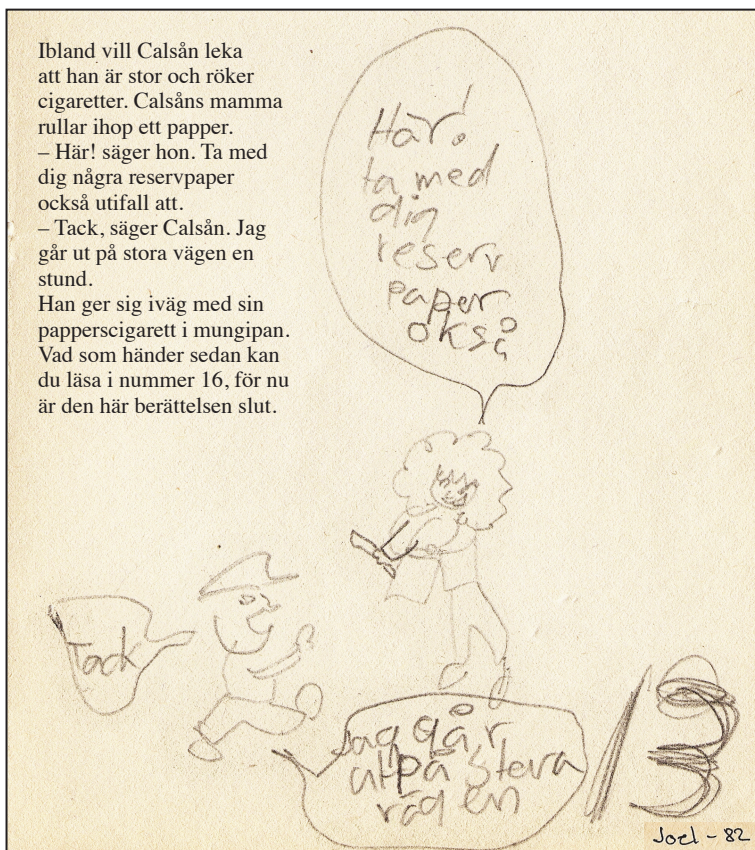 Ibland vill Calsån leka
att han är stor och röker
cigaretter. Calsåns mamma
rullar ihop ett papper.
– Här! säger hon. Ta med
dig några reservpaper
också utifall att.
– Tack, säger Calsån. Jag
går ut på stora vägen en
stund.
Han ger sig iväg med sin
papperscigarett i mungipan.
Vad som händer sedan kan
du läsa i nummer 16, för nu
är den här berättelsen slut.
Här!
ta med
dig
reserv
paper
okså
Tack
Jag går
utpå stora
vägen
13
Joel - 82